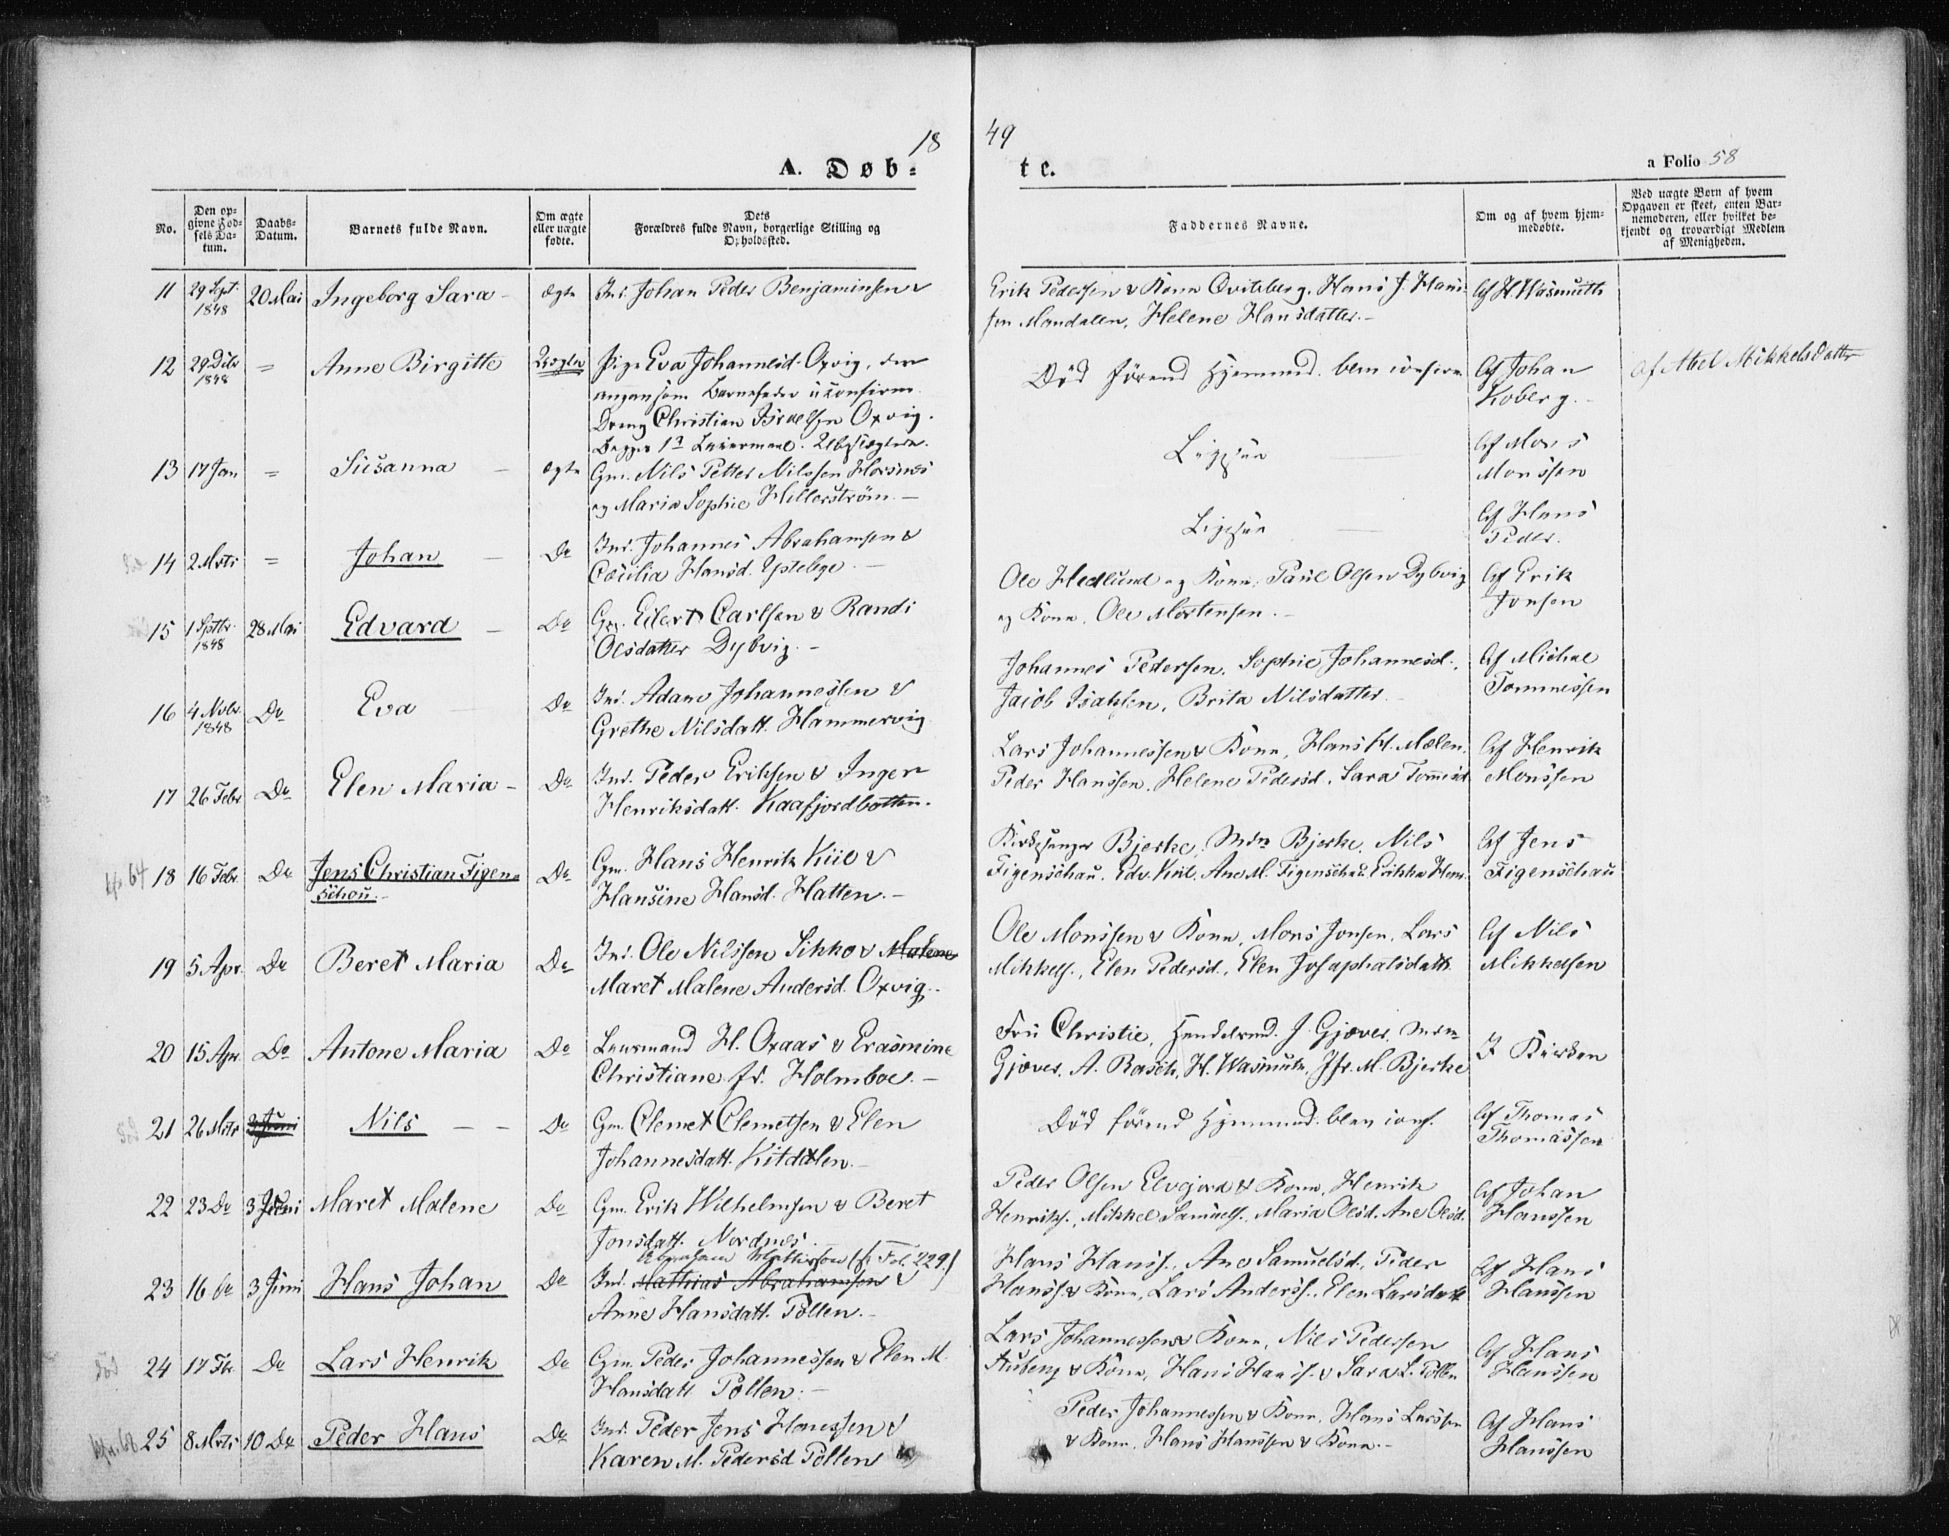 18
49
A. Døb-
te.
a Folio 58
No.
Den opgivne Fødsels Datum.
Daabs-Datum.
Barnets fulde Navn.
Om ægte eller uægte fødte.
Dets Forældres fulde Navn, borgerlige Stilling og Opholdssted.
Faddernes Navne.
Om og af hvem hjemmedøbte.
Ved uægte Børn af hvem Opgaven er skeet, enten Barnemoderen, eller hvilket bekjendt og troværdigt Medlem af Menigheden.
11 29 Sept 1848 20 Mai Ingeborg Sara - ægte Ind. Johan Peder Benjaminsen &
Erik Pedersen & Kone Qviteberg, Hans J. Han-
sen Mandalen, Helene Hansdatter. -
Af H. Wasmuth
12 29 Decbr 1848 = Anne Birgitte Uægte Pige Eva Johannesd. Oxvig, der
angav som Barnefader ukonfirm.
Dreng Christian Israelsen Oxvig.
Begges 1ste Leiermaal.
Død førend Hjemmed. blev confirm.
Af Johan
Koberg. -
Af Abel Mikkelsdatter
13 17 Jan = Susanna - ægte Gm. Nils Petter Nilssen Horsnes
og Maria Sophie Hellerström. -
Ligesaa
Af Mons
Monssen
14 2 Mrts = Johan - Do Ind. Johannes Abrahamsen &
Cæcilia Hansd. -
Ligesaa
Af Hans
Peder.
15 1 Septbr. 1848 28 Mai Edvard - Do Gm. Eilert Carlsen & Randi
Olsdatter Dybvig. -
Ole Hedlund og Kone, Paul Olsen Dybvig
og Kone, Ole Mortensen. -
Af Erik
Jonsen
16 4 Novbr. 1848 Do Eva - Do Ind. Adam Johannessen &
Grethe Nilsdatt. Hammervig
Johannes Pedersen, Sophie Johannesd.,
Jacob Isaksen, Brita Nilsdatter. -
Af Michal
Tommessen
17 26 Febr Do Elen Maria - Do Ind. Peder Eriksen & Inger
Henriksdatt. Kaafjordbotten.
Lars Johannessen & Kone, Hans H. Mælen,
Peder Hanssen, Helene Pedersd., Sara Tomesd
Af Henrik
Monssen
18 16 Febr. Do Jens Christian Figen-
schou. - Do Gm. Hans Henrik Kiil &
Hansine Hansd. Hatten. -
Kirkesanger Bjerke, Mdm Bjerke, Nils
Figenschau, Edv. Kiil, Ane M. Figenschau, Erikka Hans.
Af Jens
Figenschau
19 5 Apr. Do Beret Maria Do Ind. Ole Nilssen Sikko & Malene
Maret Malene Andersd. Oxvig. -
Ole Monssen & Kone, Mons Jonsen, Lars
Mikkels., Elen Pedersd., Elen Josaphatsdatt.
Af Nils
Mikkelsen
20 15 Apr. Do Antone Maria Do Lensmand H. Oxaas & Erasmine
Christiane f. Holmboe. -
Fru Christie, Handelsmd. J. Gjæver, Mdm
Gjæver, A. Rasch, H. Wasmuth, Jfr. M. Bjerke
I Kirken
21 26 Mrts 3 Juni Nils - - Do Gm. Clemet Clemetsen & Elen
Johannesdatt. Kitdalen. -
Død førend Hjemmed. blev conf.
Af Thomas
Thomassen
22 23 Do 3 Juni Maret Malene Do Gm. Erik Wilhelmsen & Beret
Jonsdatt. Nordnes.
Peder Olsen Elvejord & Kone, Henrik
Henriks., Mikkel Samuels., Maria Olsd. Ane Olsd.
Af Johan
Hanssen
Abraham Mathissen (s. Fol. 229.)
23 16 Do 3 Juni Hans Johan Do Ind. Mathias Abrahamsen &
Anne Hansdatt. Pollen. -
Hans Hanss., Ane Samuelsd., Peder
Hanss. & Kone, Lars Anderss., Elen Larsdatt
Af Hans
Hanssen
24 17 Fb. Do Lars Henrik Do Gm. Peder Johannessen & Elen M.
Hansdatt Pollen. -
Lars Johannessen & Kone, Nils Pedersen
& Kone, Hans Hanss. & Sara L. Pollen
Af Hans
Hanssen
25 8 Mrts 10 Do Peder Hans Do Ind. Peder Jens Hanssen &
Karen M. Pedersd Pollen
Peder Johannessen & Kone, Hans Larssen
& Kone, Hans Hanssen & Kone. -
Af Hans
Hanssen